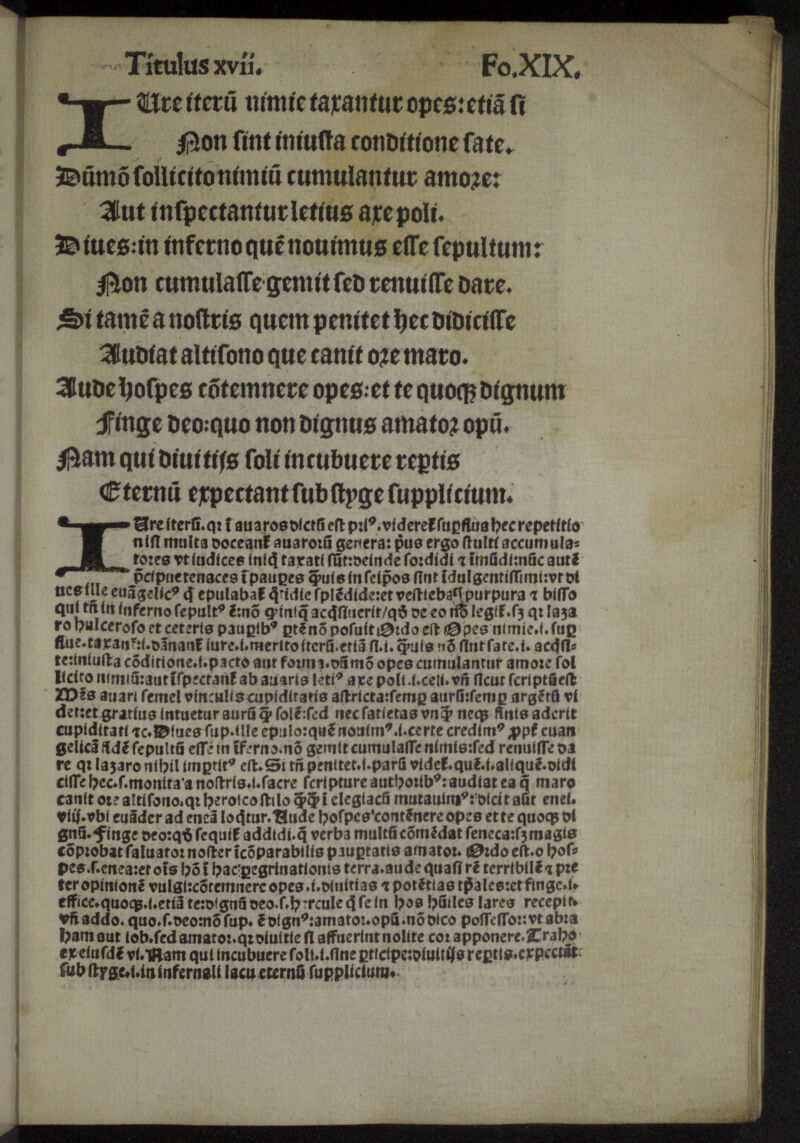 Titulus xvii. Fo.XIX.
IUre iterū nimie taxantur opes: etiā si
Non sint iniusta conditione sate.
Dūmō sollicito nimiū cumulantur amore:
Aut inspectantur letius axe poli.
Diues: in inferno quē nouimus esse sepultum:
Non cumulasse gemit sed renuisse dare.
Si tamē a nostris quem penitet hec didicisse
Audiat altisono que canit ore maro.
Aude hospes cōtemnere opes: et te quoqꝫ dignum
Finge deo: quo non dignus amator opū.
Nam qui diuitijs soli incubuere reptis
Eternū expectant sub styge supplicium.
IUre iterū. qꝛ ī auaros dictū est priꝰ. videret᷑ suꝑflua hec repetitio
nisi multa doceant᷑ auarorū genera: p̄us ergo stulti accumula⸗
tores vt iudices iniq̄ taxati sūt: deinde sordidi ⁊ īmūdi: nūc autē
p̄cipue tenaces ī pauꝑes q̄uis in seip̄os sint īdulgentissimi: vt di
ues ille euāgelicꝰ q̄ epulabat᷑ q̊tidie splēdide: et vestiebat᷑ purpura ⁊ bisso
qui tn̄ in inferno sepultꝰ ē: nō ꝙ iniq̄ acq̄sluerit/qd̄ de eo nō legit᷑. sꝫ qꝛ laza
ro hulceroso et ceteris pauꝑibꝰ ꝑtē nō posuit. Ordo est Opes nimie. i. suꝑ
flue. taxant᷑. i. dānant᷑ iure. i. merito iterū. etiā si. i. q̄uis nō sint sate. i. acq̄si⸗
te: iniusta cōditione. i. pacto aut forma. dū mō opes cumulantur amore sol
licito nimiū: aut īspectant᷑ ab auaris letiꝰ axe poli. i. celi. vn̄ sicut scriptū est:
Mēs auari semel vinculis cupiditatis astricta: semꝑ aurū: semꝑ argētū vi
det: et gratius intuetur aurū q̄ȝ solē: sed nec satietas vnq̄ȝ neqꝫ finis aderit
cupiditati ⁊c. Diues suꝑ. ille epulo: quē nouimꝰ. i. certe credimꝰ ꝓpt᷑ euan
gelicā fidē sepultū esse in īferno. nō gemit cumulasse nimis: sed renuisse da
re qꝛ lazaro nihil imꝑtitꝰ est. Si tn̄ penitet. i. parū videt᷑. quē. i. aliquē. didi
cisse hec. s. monita a nostris. i. sacre scripture authoribꝰ: audiat ea q̄ maro
canit ore altisono. qꝛ heroico stilo q̄ȝq̄ȝ ī elegiacū mutauimꝰ: dicit aūt enei.
viij. vbi euāder ad eneā loq̄tur. Aude hospes contēnere opes et te quoqꝫ di
gnū. Finge deo: qd̄ sequit᷑ addidi. q̄ verba multū cōmēdat seneca: sꝫ magis
cōprobat saluator noster īcōparabilis pauꝑtatis amator. Ordo est. o hos⸗
pes. s. enea: et oīs hō ī hac ꝑegrinationis terra. aude quasi rē terribilē ⁊ pre
ter opinionē vulgi: cōtemnere opes. i. diuitias ⁊ potētias tp̄ales: et finge. i.
effice. quoqꝫ. i. etiā te: dignū deo. s. hercule q̄ se in hos hūiles lares recepit.
vn̄ addo. quo. s. deo: nō sup. ē dignꝰ: amator. opū. nō dico possessor: vt abra
ham aut iob. sed amator. qꝛ diuitie si affluerint nolite cor apponere. Traho
ex eiusdē vi. Nam qui incubuere soli. i. sine ꝑticipe: diuitijs reꝑtis. expectāt
sub styge. i. in infernali lacu eternū supplicium.